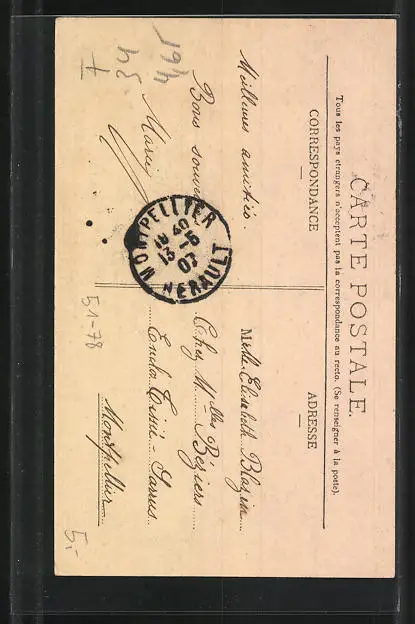 CARTE POSTALE.
Tous les pays étrangers n'acceptent pas la correspondance au recto. (Se renseigner à la poste).
CORRESPONDANCE
ADRESSE
Meilleures amitiés.
Bons souvenirs
Marie
MONTPELLIER
HERAULT
13-5
07
Melle Elisabeth Blazin
Chez Melles Béziers
Montpellier
51-78
5.-